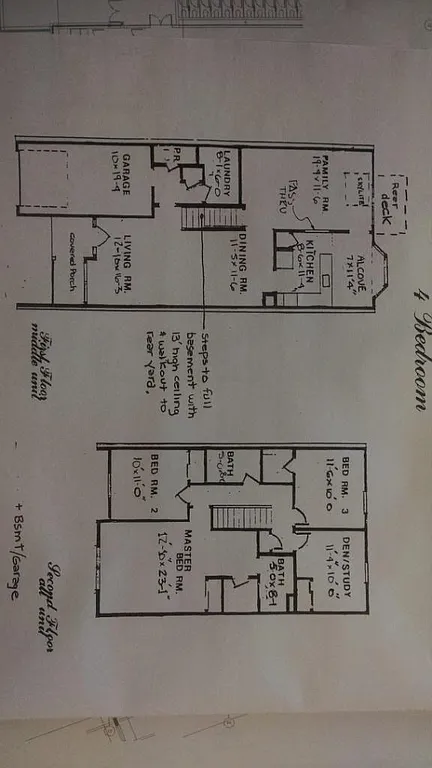 4 Bedroom
Rear
deck
SKYLITE
FAMILY RM.
19-9x11-6
ALCOVE
7'X11'4"
PASS
THRU
KITCHEN
8-6x11-4
LAUNDRY
P.R.
DINING RM.
11-5x11-6
GARAGE
10x19-9
LIVING RM.
Covered Porch
steps to full
basement with
13' high ceiling
& walkout to
rear yard.
First Floor
middle unit
BED RM. 3
11-6x10-0
DEN/STUDY
11-9x10'6"
BATH
BATH
5-0x8-1
BED RM. 2
10'x11'0"
MASTER
BED RM.
12'-10x23'-1"
Second Floor
all unit
+ Bsmt/Garage